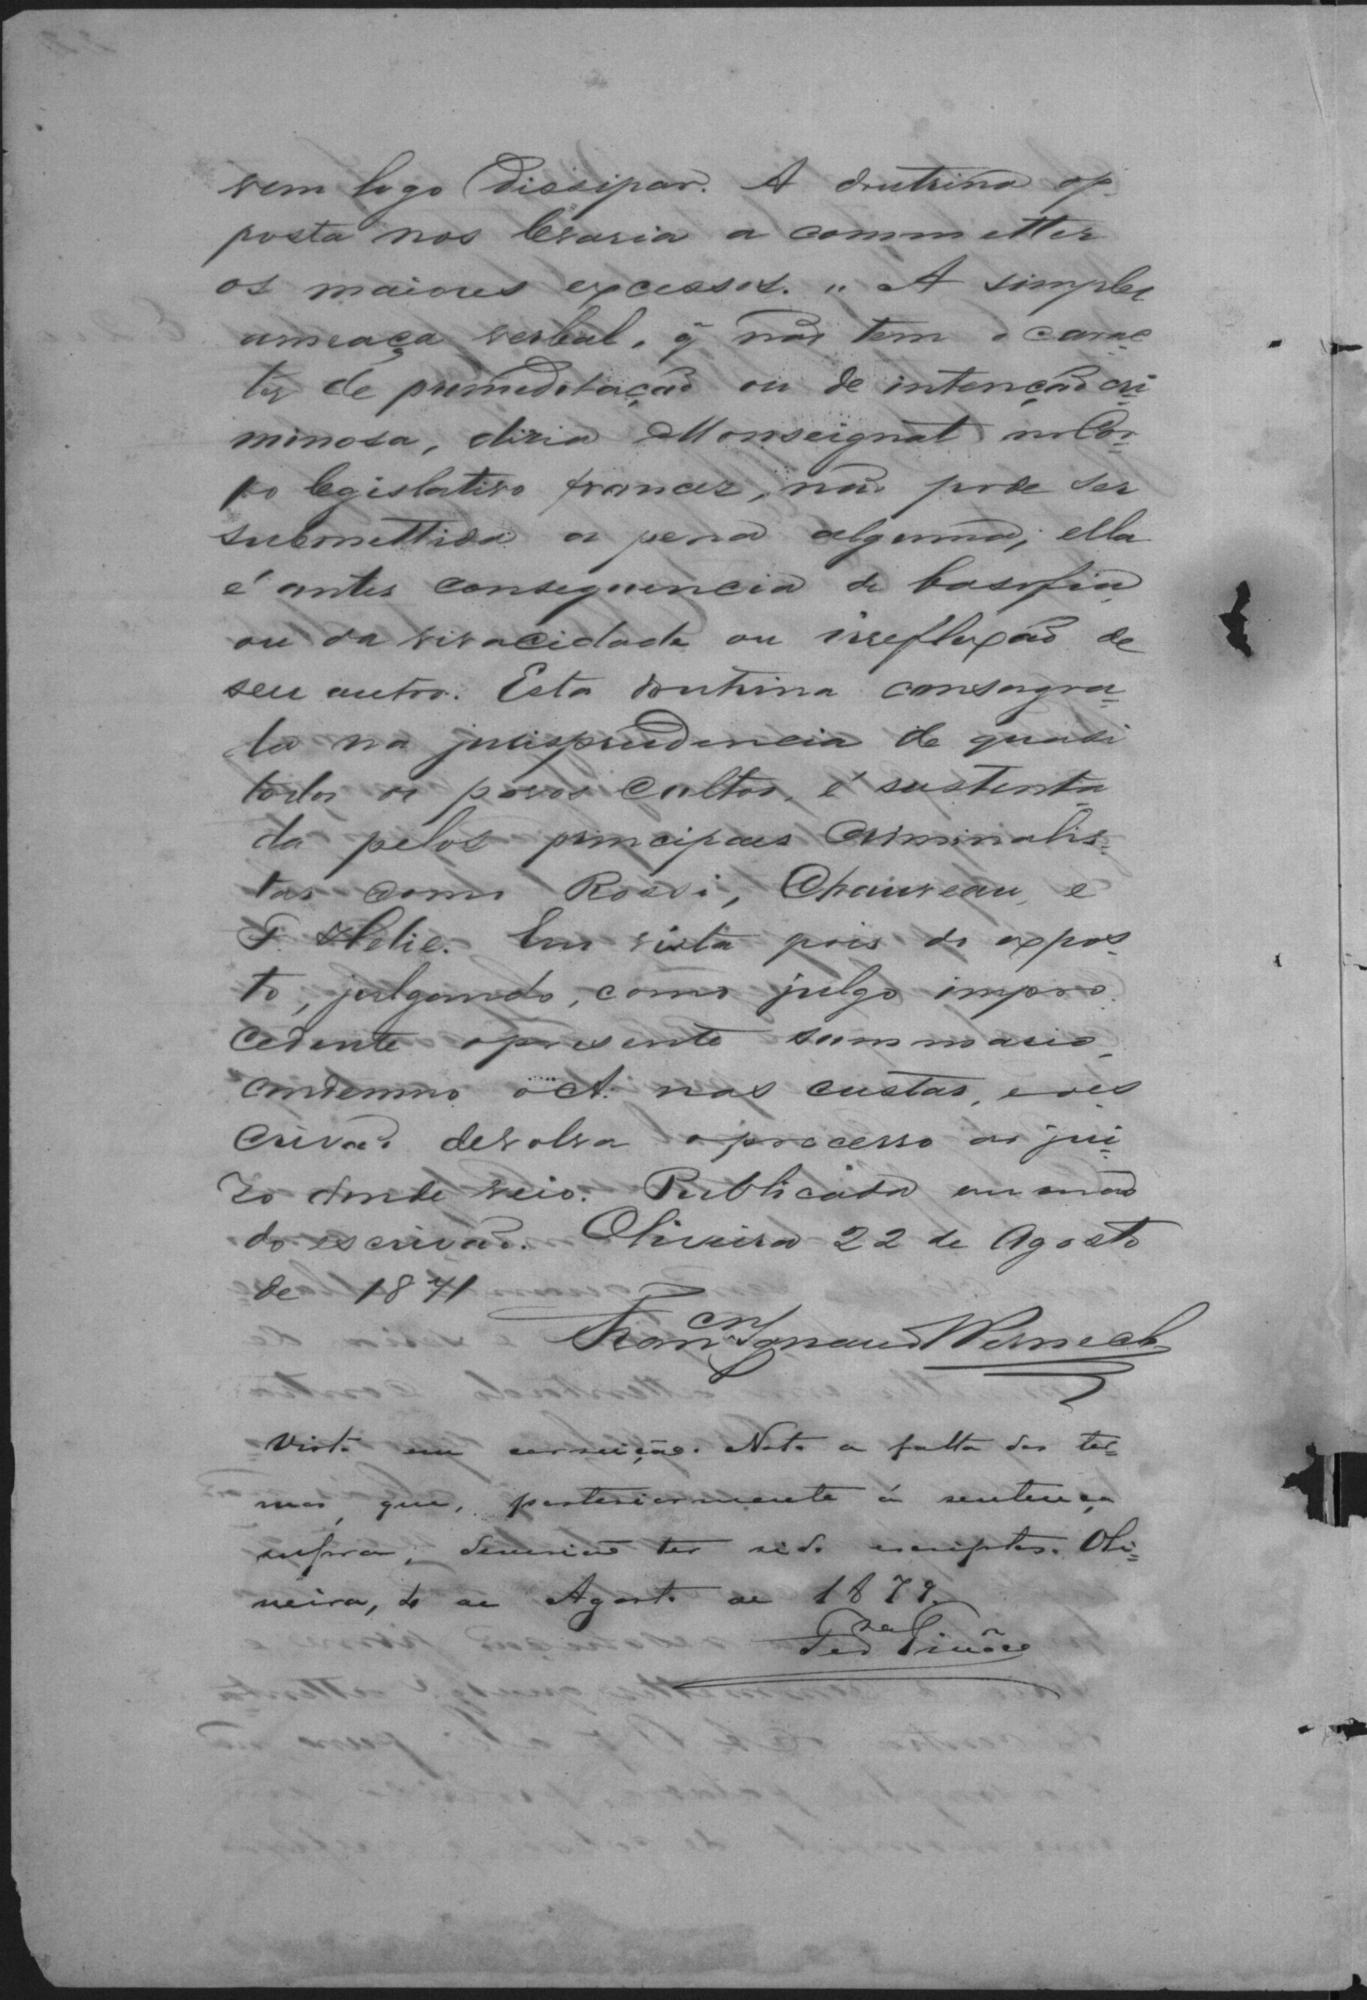 vem logo dissipar. A doutrina op-
posta nos levaria a commetter
os maiores excessos. " A simples
ameaça verbal, q̃ não tem o carac-
ter de premeditação ou de intenção cri-
minosa, dizia Monseignat no Cor-
po legislativo francez, não pode ser
submettida a pena alguma; ella
é antes consequencia de basofia
ou da vivacidade ou irreflexão de
seu autor. Esta doutrina consagra-
da na jurisprudencia de quasi
todos os povos cultos, é sustenta-
da pelos principaes Criminalis-
tas como Rossi, Chauveau e
F. Helie. Em vista pois do expos-
to, julgando, como julgo impro-
cedente o presente summario,
condemno o A. nas custas, e o es-
crivão devolva o processo ao jui-
zo donde veio. Publicada em mão
do escrivão. Oliveira 22 de Agosto
de 1871
Franco. Ignacio Werneck
Visto em correição. Noto a falta dos ter-
mos, que, posteriormente á sentença
supra, deverião ter sido escriptos. Oli-
veira, de Agosto de 1879.